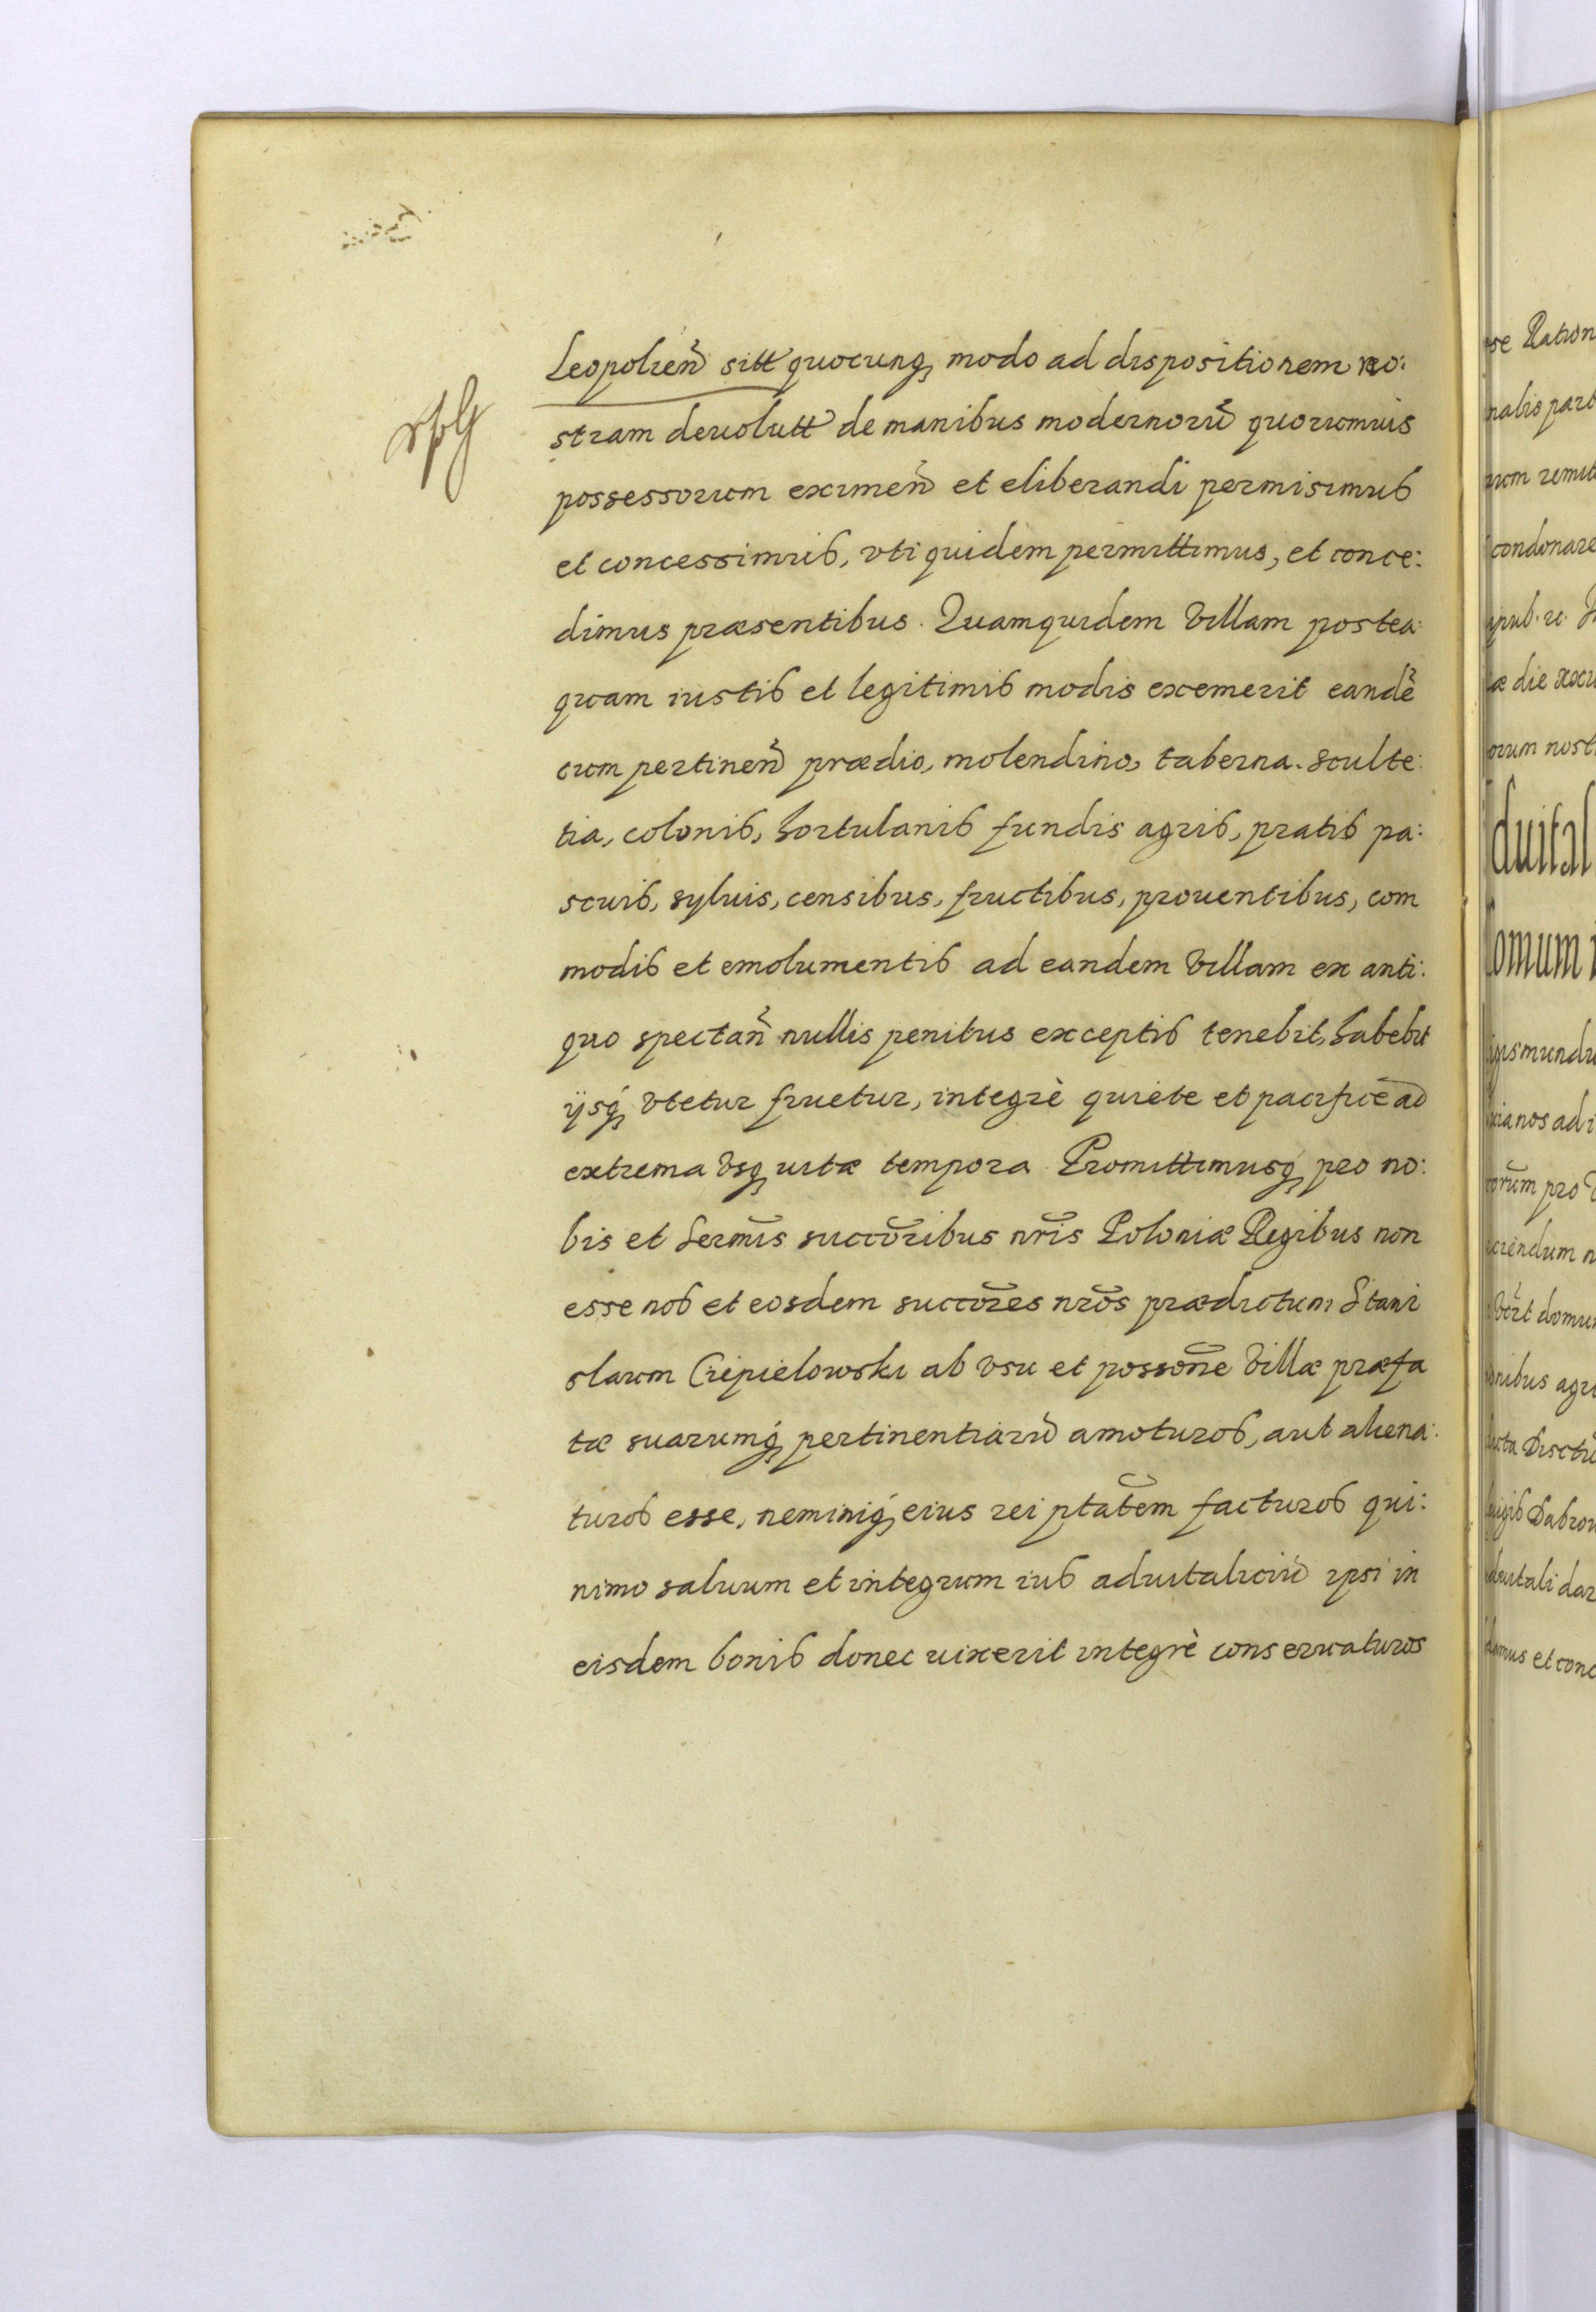 Leopolień sitt quocunq modo ad dispositionem no:
stram deuolutt de manibus modernorũ quorumuis
possessorum eximeñ et eliberandi permisimus
et concessimus, vti quidem permittimus, et conce:
dimus præsentibus. Quamquidem Villam postea:
quam iustis et legitimis modis exemerit eandẽ
cum pertineñ prædio, molendino, taberna. sculte:
tia, colonis, hortulanis fundis agris, pratis pa:
scuis, syluis, censibus, fructibus, prouentibus, com
modis et emolumentis ad eandem Villam ex anti:
quo spectañ nullis penitus exceptis tenebit, habebit
ijsq́ vtetur fruetur, integrè quiète et pacificè ad
extrema vsq uitæ tempora. Promittimusq́ pro no:
bis et Sermis succoribus nris Poloniæ Regibus non
esse nos et eosdem succores nros prædictum Stani
slaum Criepielowski ab vsu et possone Villæ præfa
tæ suarumq́ pertinentiarũ amoturos, aut aliena:
turos esse, neminiq́ eius rei ptatem facturos qui:
nimo saluum et integrum ius aduitaliciũ ipsi in
eisdem bonis donec uixerit integrè conseruaturos
se Ration
nalis part
rum remit
condonare
æ die
orum nost
duital
omum
gismundu
cia nos ad i
torum pro
ciendum n
domu
onibus agri
Disctu
Dabrow
duitali dar
damus et conc